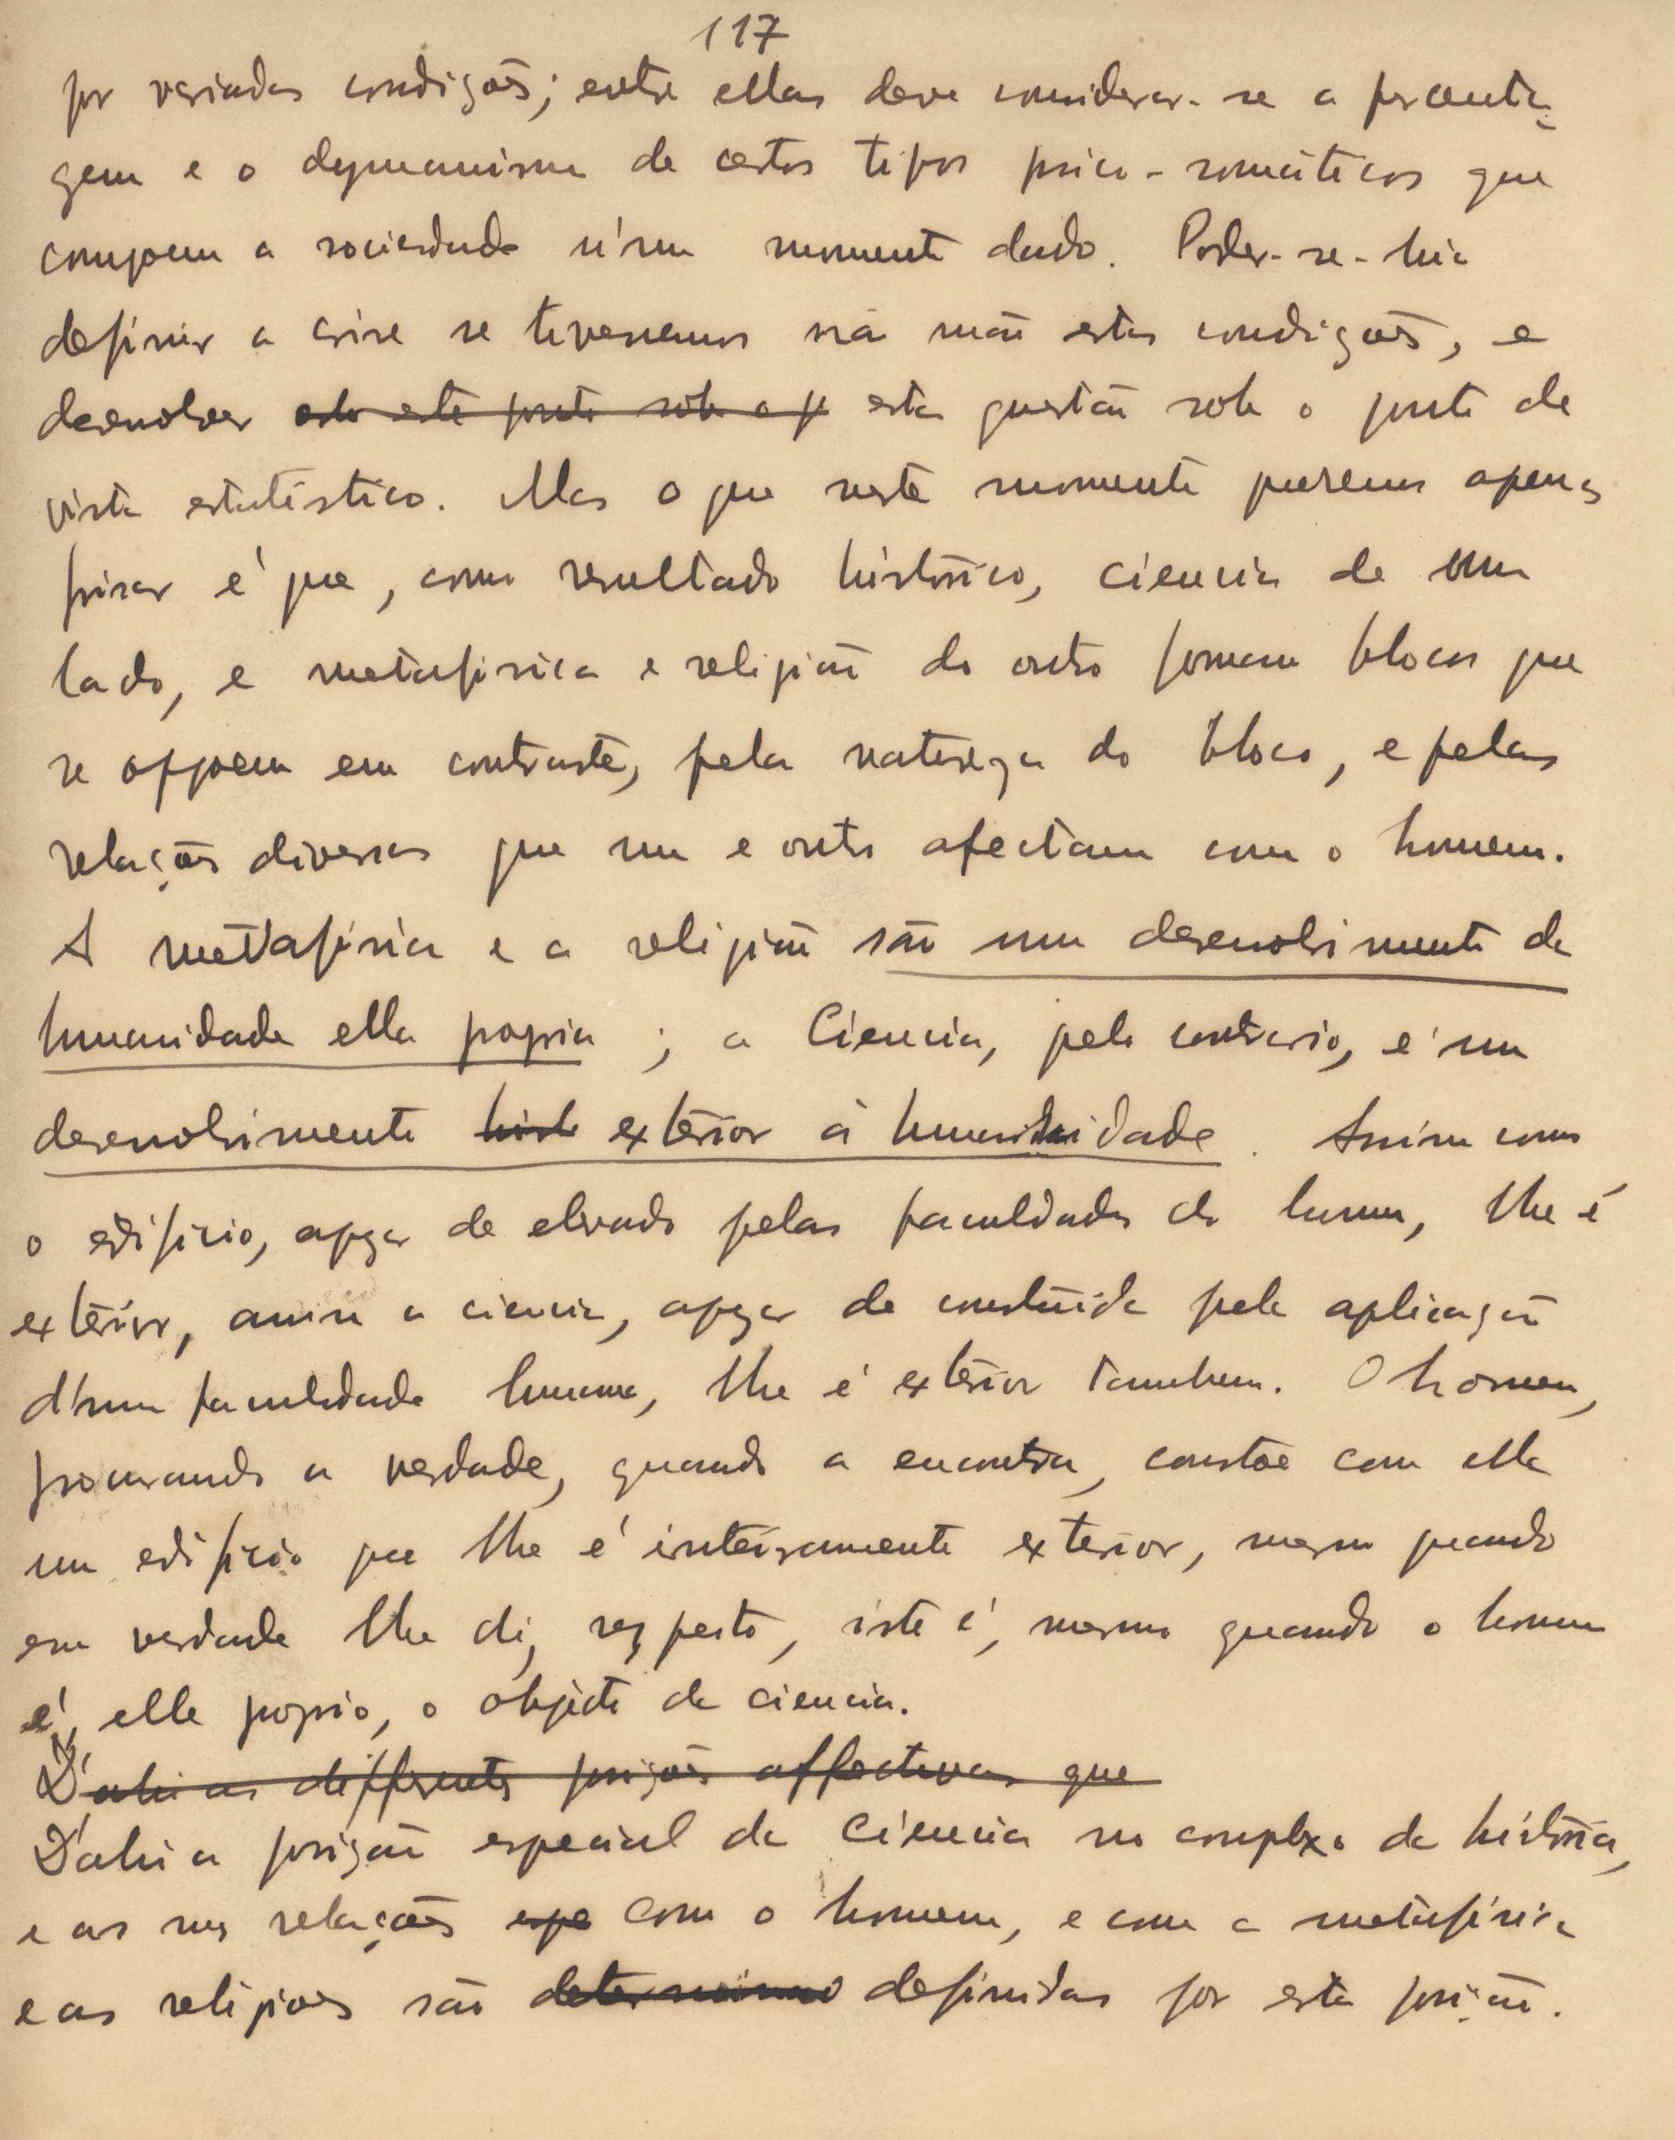 117
por variadas condições; entre ellas deve considerar-se a percenta-
gem e o dymanismo de certos tipos psico-somáticos que
compoem a sociedade n'um momento dado. Poder-se-hia
definir a crise se tivessemos na mão estas condições, e
desenvolver este ponto sob o p esta questão sob o ponto de
vista estatístico. Mas o que neste momento queremos apenas
frisar é que, como resultado histórico, ciencia de um
lado, e metafisica e religião do outro formam blocos que
se oppoem em contraste, pela natureza do bloco, e pelas
relações diversas que um e outro afectam com o homem.
A metafisica e a religião são um desenvolvimento da
humanidade ella propria; a Ciencia, pelo contrario, é um
desenvolvimento exterior á humanidade. Assim como
o edificio, apezar de elevado pelas faculdades do homem, lhe é
exterior, assim a ciencia, apezar de construida pela aplicação
d'uma faculdade humana, lhe é exterior tambem. O homem,
procurando a verdade, quando a encontra, constroe com ella
um edificio que lhe é inteiramente exterior, mesmo quando
em verdade lhe diz respeito, isto é, mesmo quando o homem
é, elle proprio, o objecto da ciencia.
D'ahi as differentes posições affectivas que
D'ahi a posição especial da Ciencia no complexo da história,
e as suas relações espe com o homem, e com a metafisica
e as religioes são determinad definidas por esta posição.